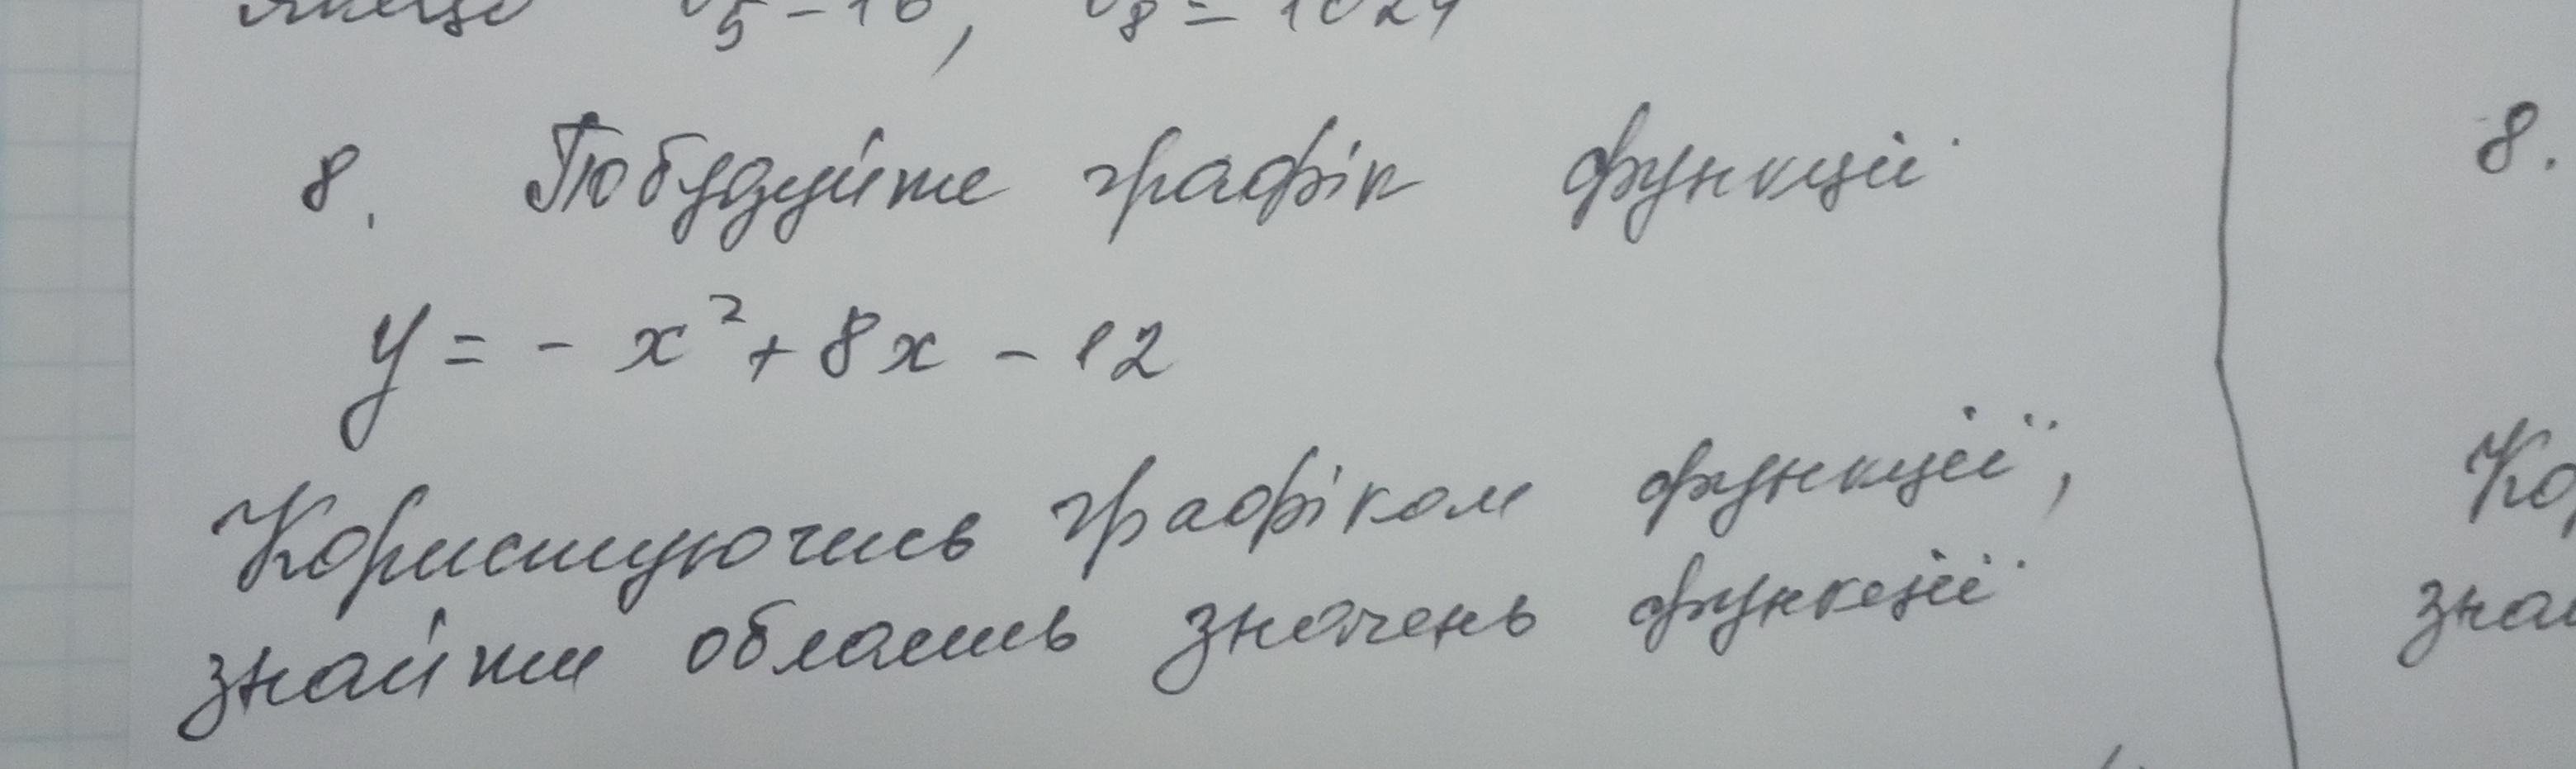 якщо b₅ = 16, b₈ = 1024
8. Побудуйте графік функції 8.
y = - x² + 8x - 12
Користуючись графіком функції, Ко
знайти область значень функції зна